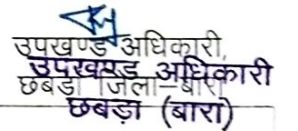 उपखण्ड अधिकारी,
उपखण्ड अधिकारी
छबड़ा जिला-बारां
छबड़ा (बारां)